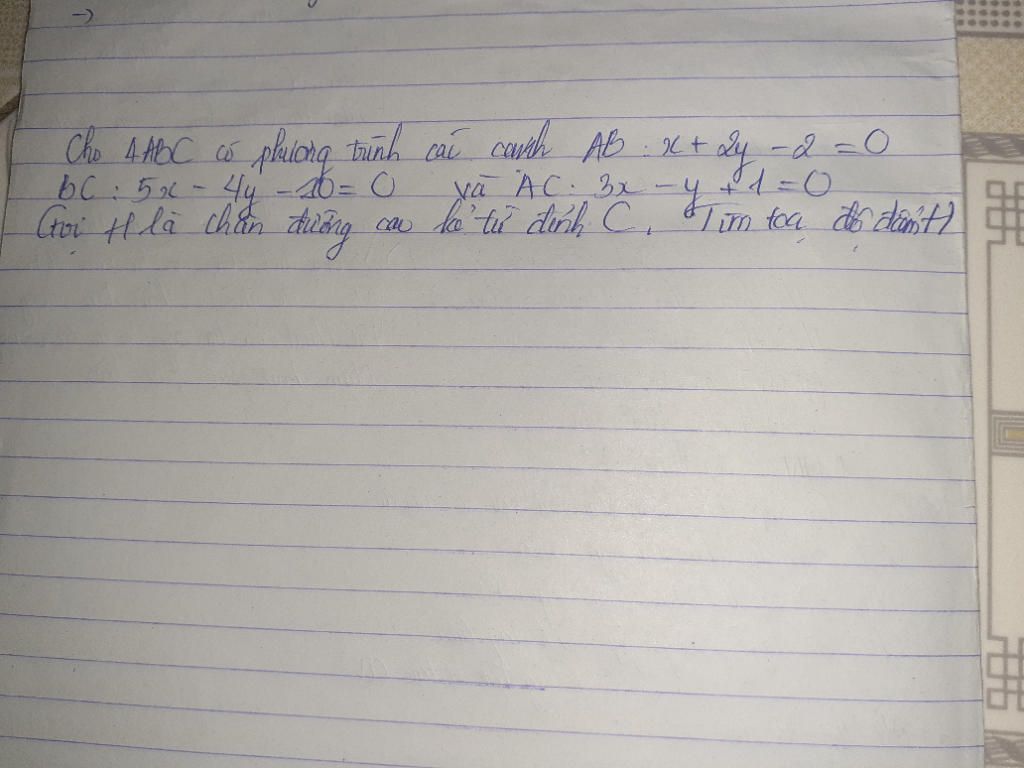 →
Cho ΔABC có phương trình các cạnh AB : x + 2y - 2 = 0
BC : 5x - 4y - 10 = 0 và AC : 3x - y + 1 = 0
Gọi H là chân đường cao kẻ từ đỉnh C. Tìm toạ độ điểm H